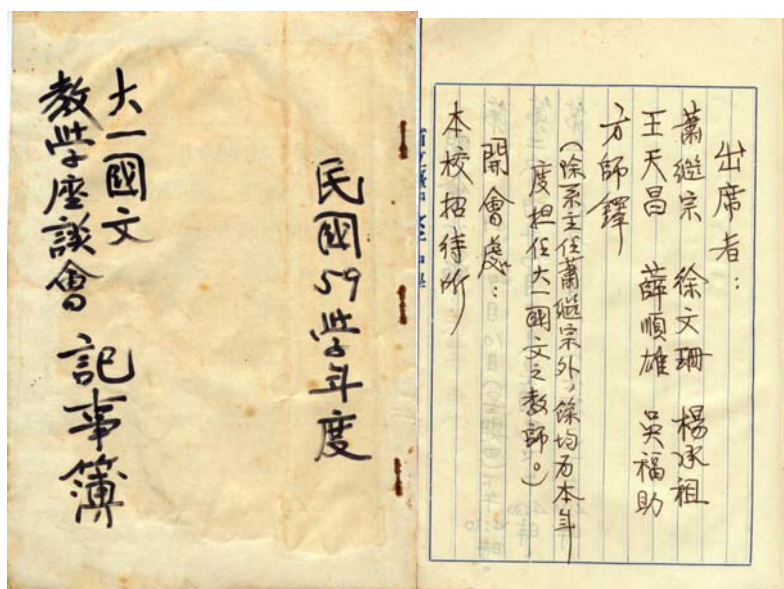 民國59學年度
大一國文
教學座談會 記事簿
出席者：
蕭繼宗 徐文珊 楊承祖
王天昌 薛順雄 吳福助
方師鐸
（除系主任蕭繼宗外，餘均為本年
度担任大一國文之教師。）
開會處：
本校招待所